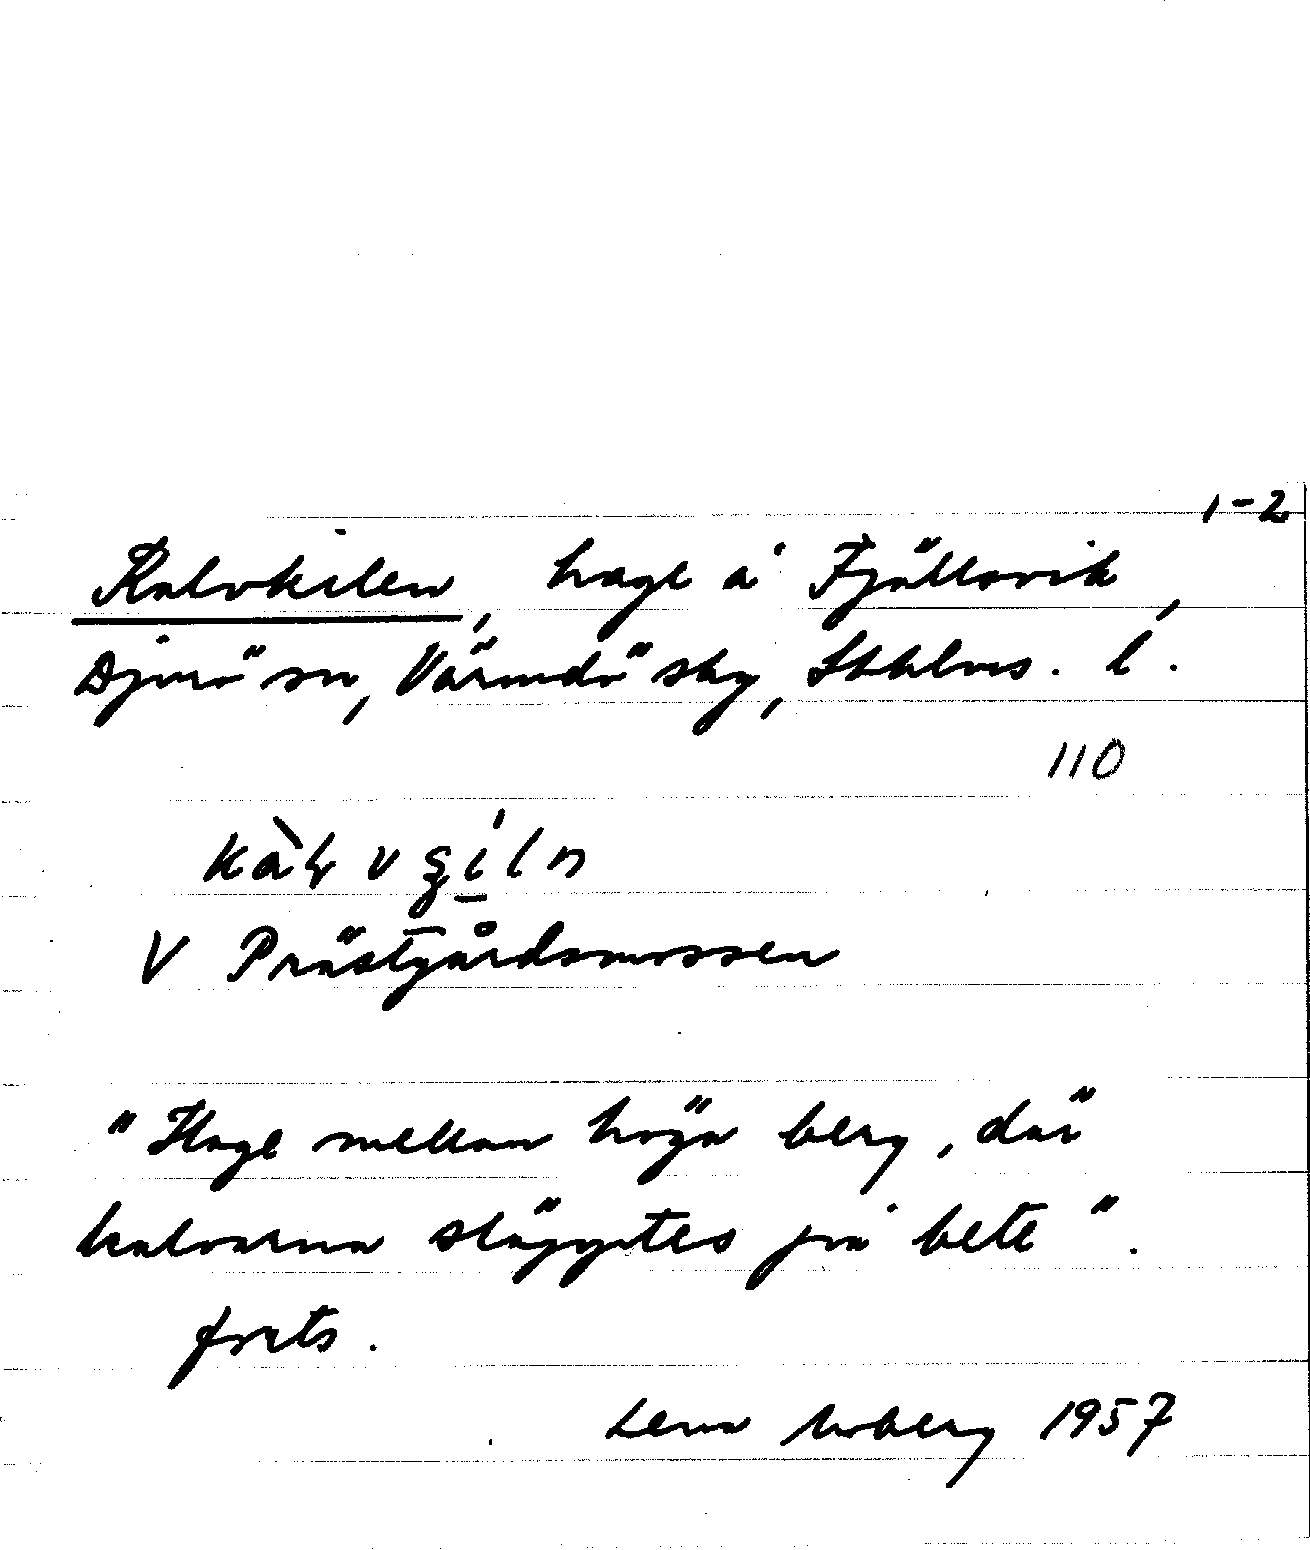 1-2
Kalvkilen, hage å Fjällsvik,
Djurö sn, Värmdö skg, Sthlms. l.
110
V Prästgårdsmossen
"Hage mellan höga berg, där
kalvarna släpptes på bete".
forts.
Lena Moberg 1957